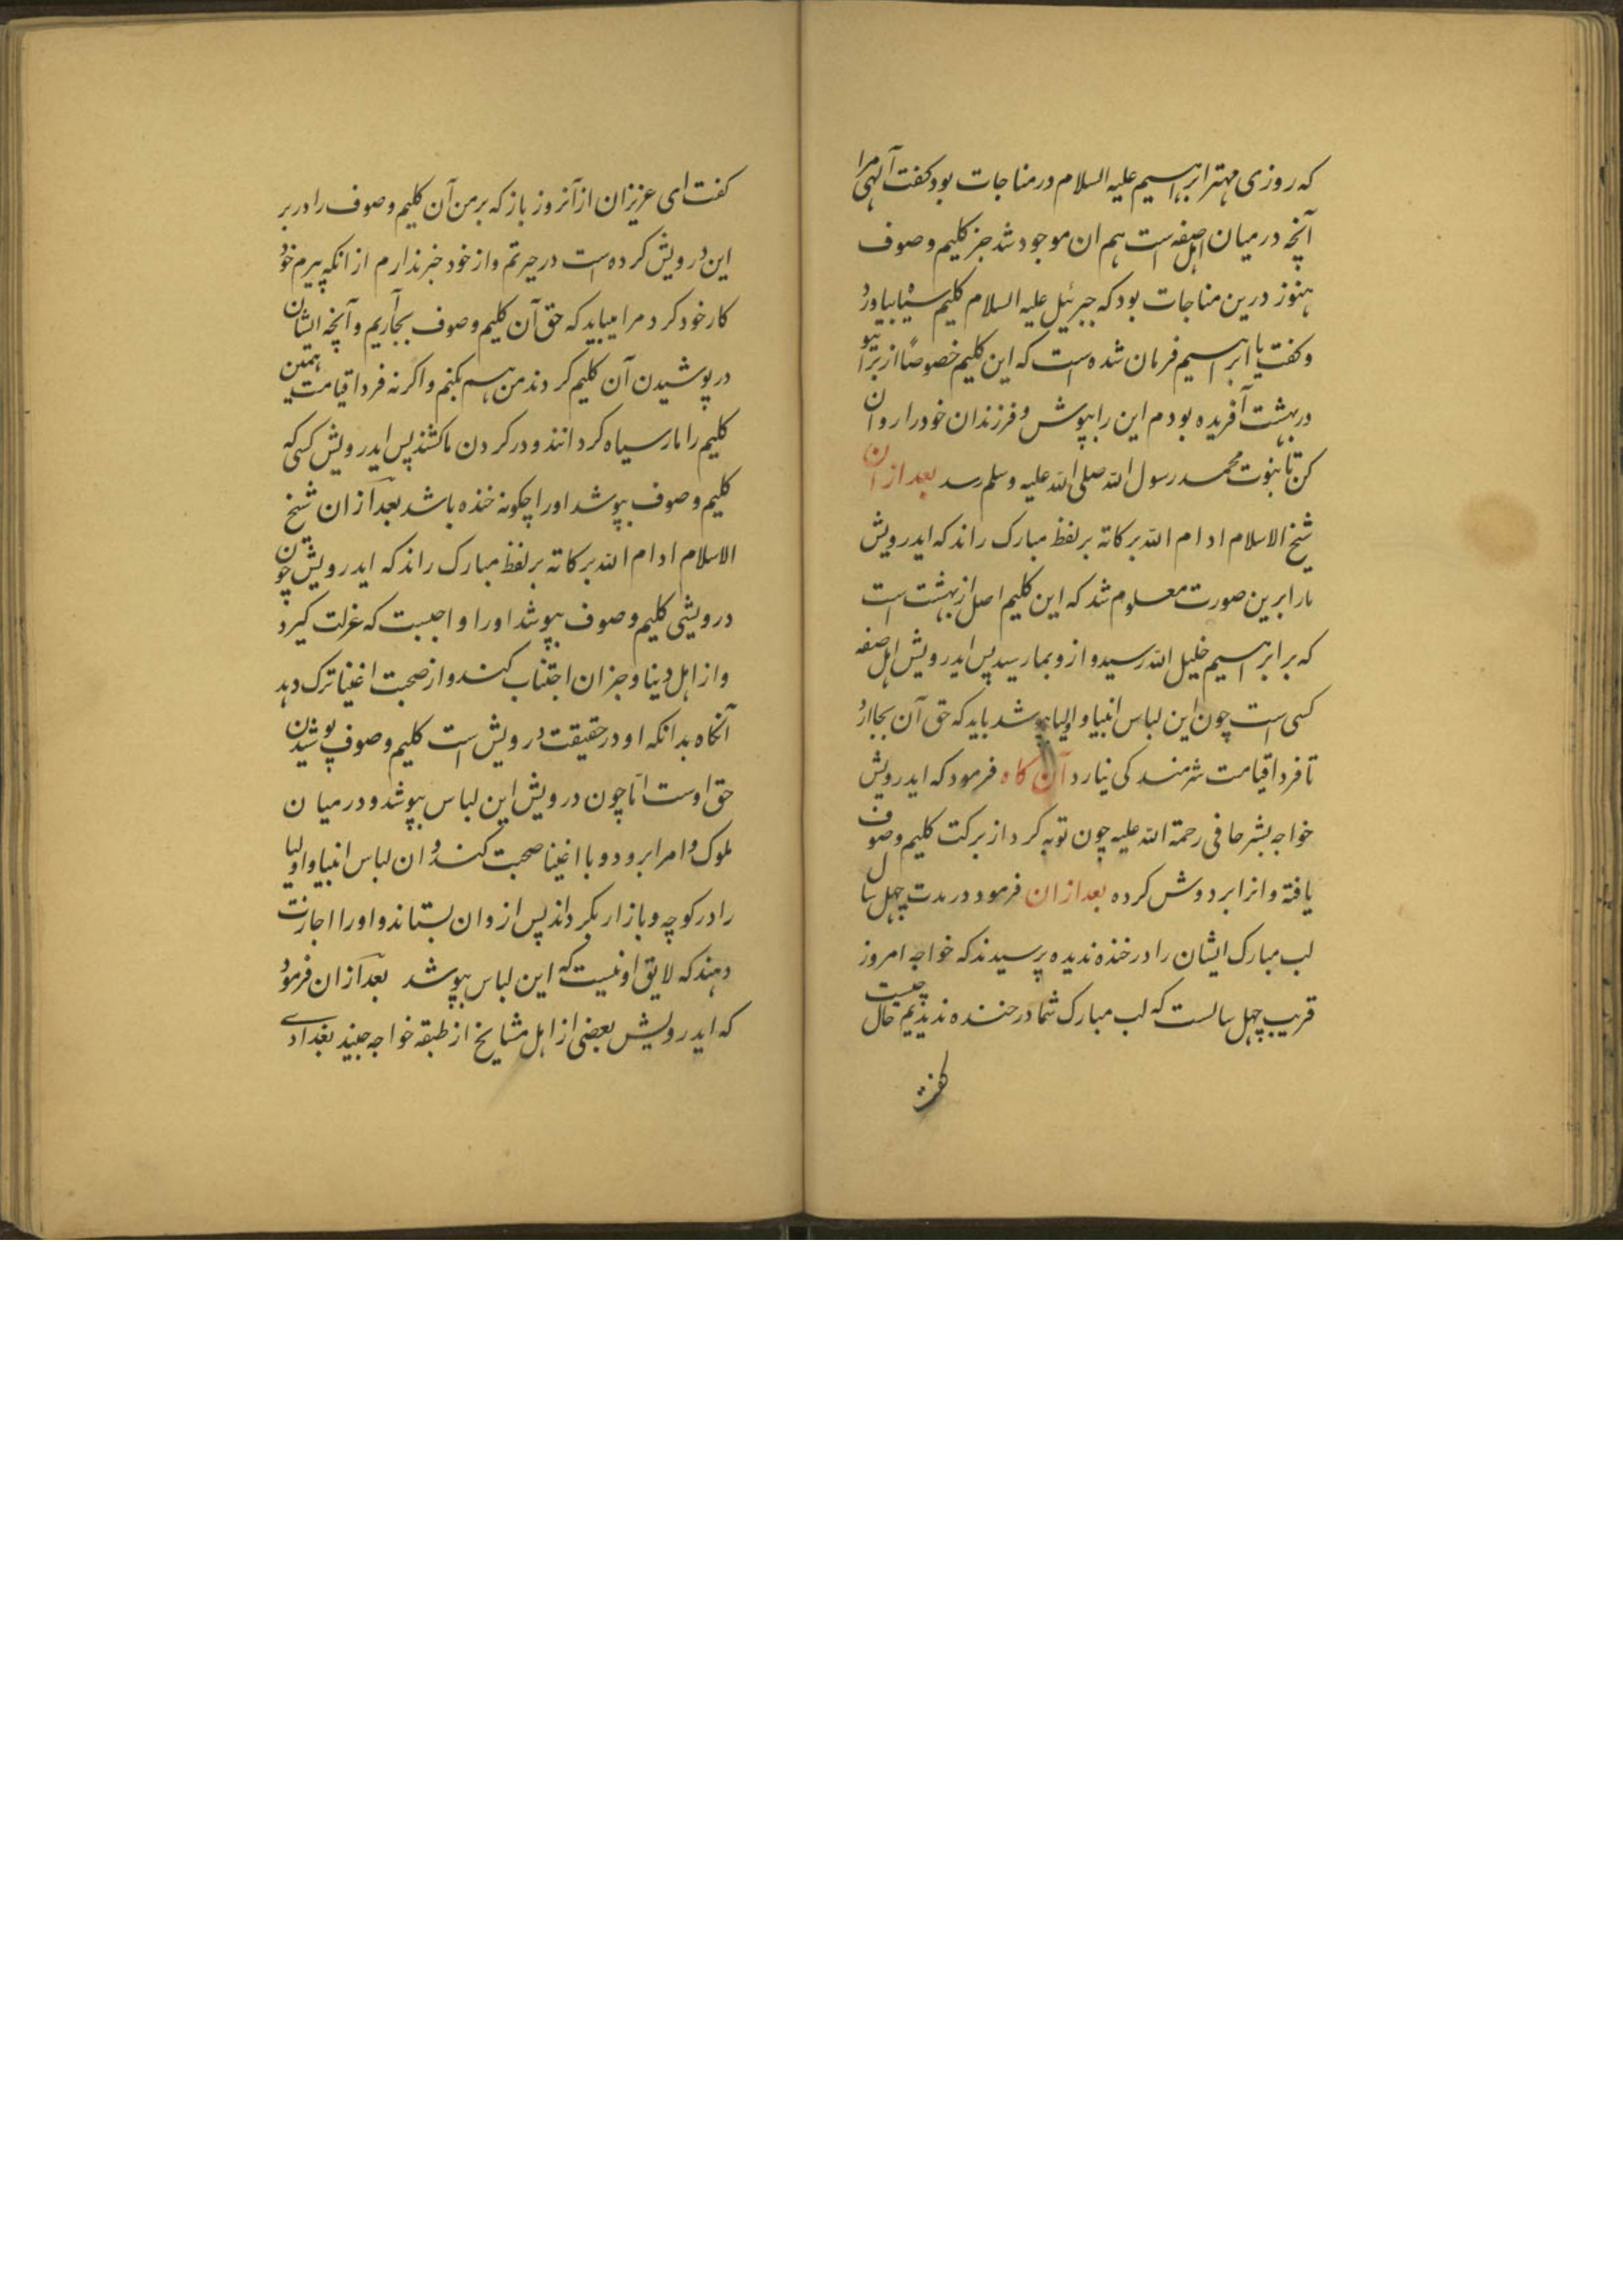 که روزی مهتر ابراهیم علیه السلام در مناجات بود کفت آلهی مرا
آنچه در میان اهل صفه است هم ان موجود شد جز کلیم و صوف
هنوز درین مناجات بود که جبرئیل علیه السلام کلیم سیاه بیاورد
و کفت یا ابراهیم فرمان شده است که این کلیم خصوصًا از برا تو
در بهشت آفریده بودم این را بپوش و فرزندان خود را روان
کن تا بنبوت محمد رسول الله صلی الله علیه وسلم رسد بعد از ان
شیخ الاسلام ادام الله برکاته بر لفظ مبارک راند که ایدرویش
مارا برین صورت معلوم شد که این کلیم اصل از بهشت است
که بر ابراهیم خلیل الله رسید و ازو بما رسید پس ایدرویش اهل صفه
کسی است چون این لباس انبیا و اولیا بپوشد باید که حق آن بجا ارد
تا فردا قیامت شرمندکی نیارد آن کاه فرمود که ایدرویش
خواجه بشر حافی رحمة الله علیه چون توبه کرد از برکت کلیم و صوف
یافته و انرا بر دوش کرده بعد از ان فرمود در مدت چهل سال
لب مبارک ایشان را در خنده ندیده پرسیدند که خواجه امروز
قریب چهل سالست که لب مبارک شما در خنده ندیدیم حال چیست
کفت
کفت ای عزیزان از آنروز باز که بر من آن کلیم و صوف را در بر
این درویش کرده است در حیرتم و از خود خبر ندارم از انکه پیرم خود
کار خود کرد مرا میباید که حق آن کلیم و صوف بجا آریم و آنچه ایشان
در پوشیدن آن کلیم کردند من هم بکنم و اکرنه فردا قیامت همین
کلیم را مار سیاه کردانند و در کردن ما کشند پس ایدرویش کسی که
کلیم و صوف بپوشد اورا چکونه خنده باشد بعد از ان شیخ
الاسلام ادام الله برکاته بر لفظ مبارک راند که ایدرویش چون
درویشی کلیم و صوف بپوشد اورا واجبست که عزلت کیرد
و از اهل دنیا و جز ان اجتناب کند و از صحبت اغنیا ترک دهد
آنکاه بدانکه او در حقیقت درویش است کلیم و صوف پوشیدن
حق اوست اما چون درویش این لباس بپوشد و در میان
ملوک و امرا برود و با اغنیا صحبت کند و ان لباس انبیا و اولیا
را در کوچه و بازار بکرداند پس از و ان بستاند و اورا اجازت
دهند که لایق او نیست که این لباس بپوشد بعد از ان فرمود
که ایدرویش بعضی از اهل مشایخ از طبقه خواجه جنید بغدادی